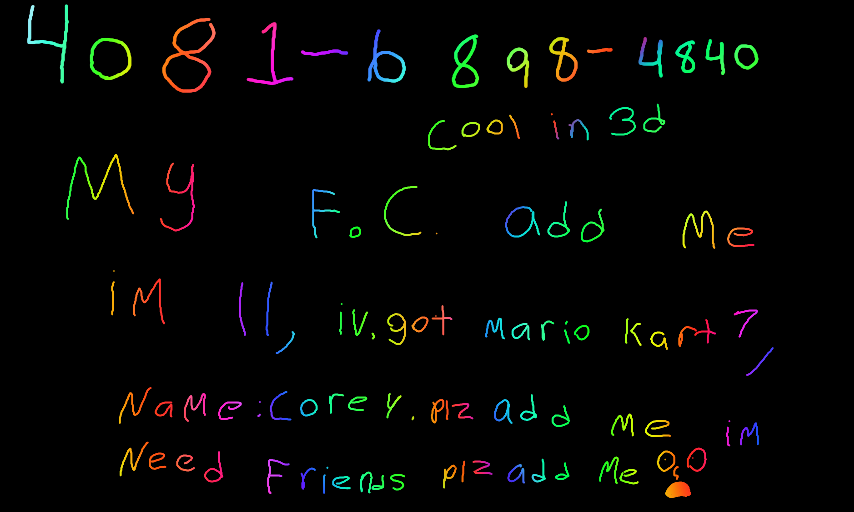 4081-6898-4840
Cool in 3d
My F.C. add Me
iM 11, iv.got Mario Kart 7,
NaMe:Corey. plz add Me im
Need Friends plz add Me 0.0